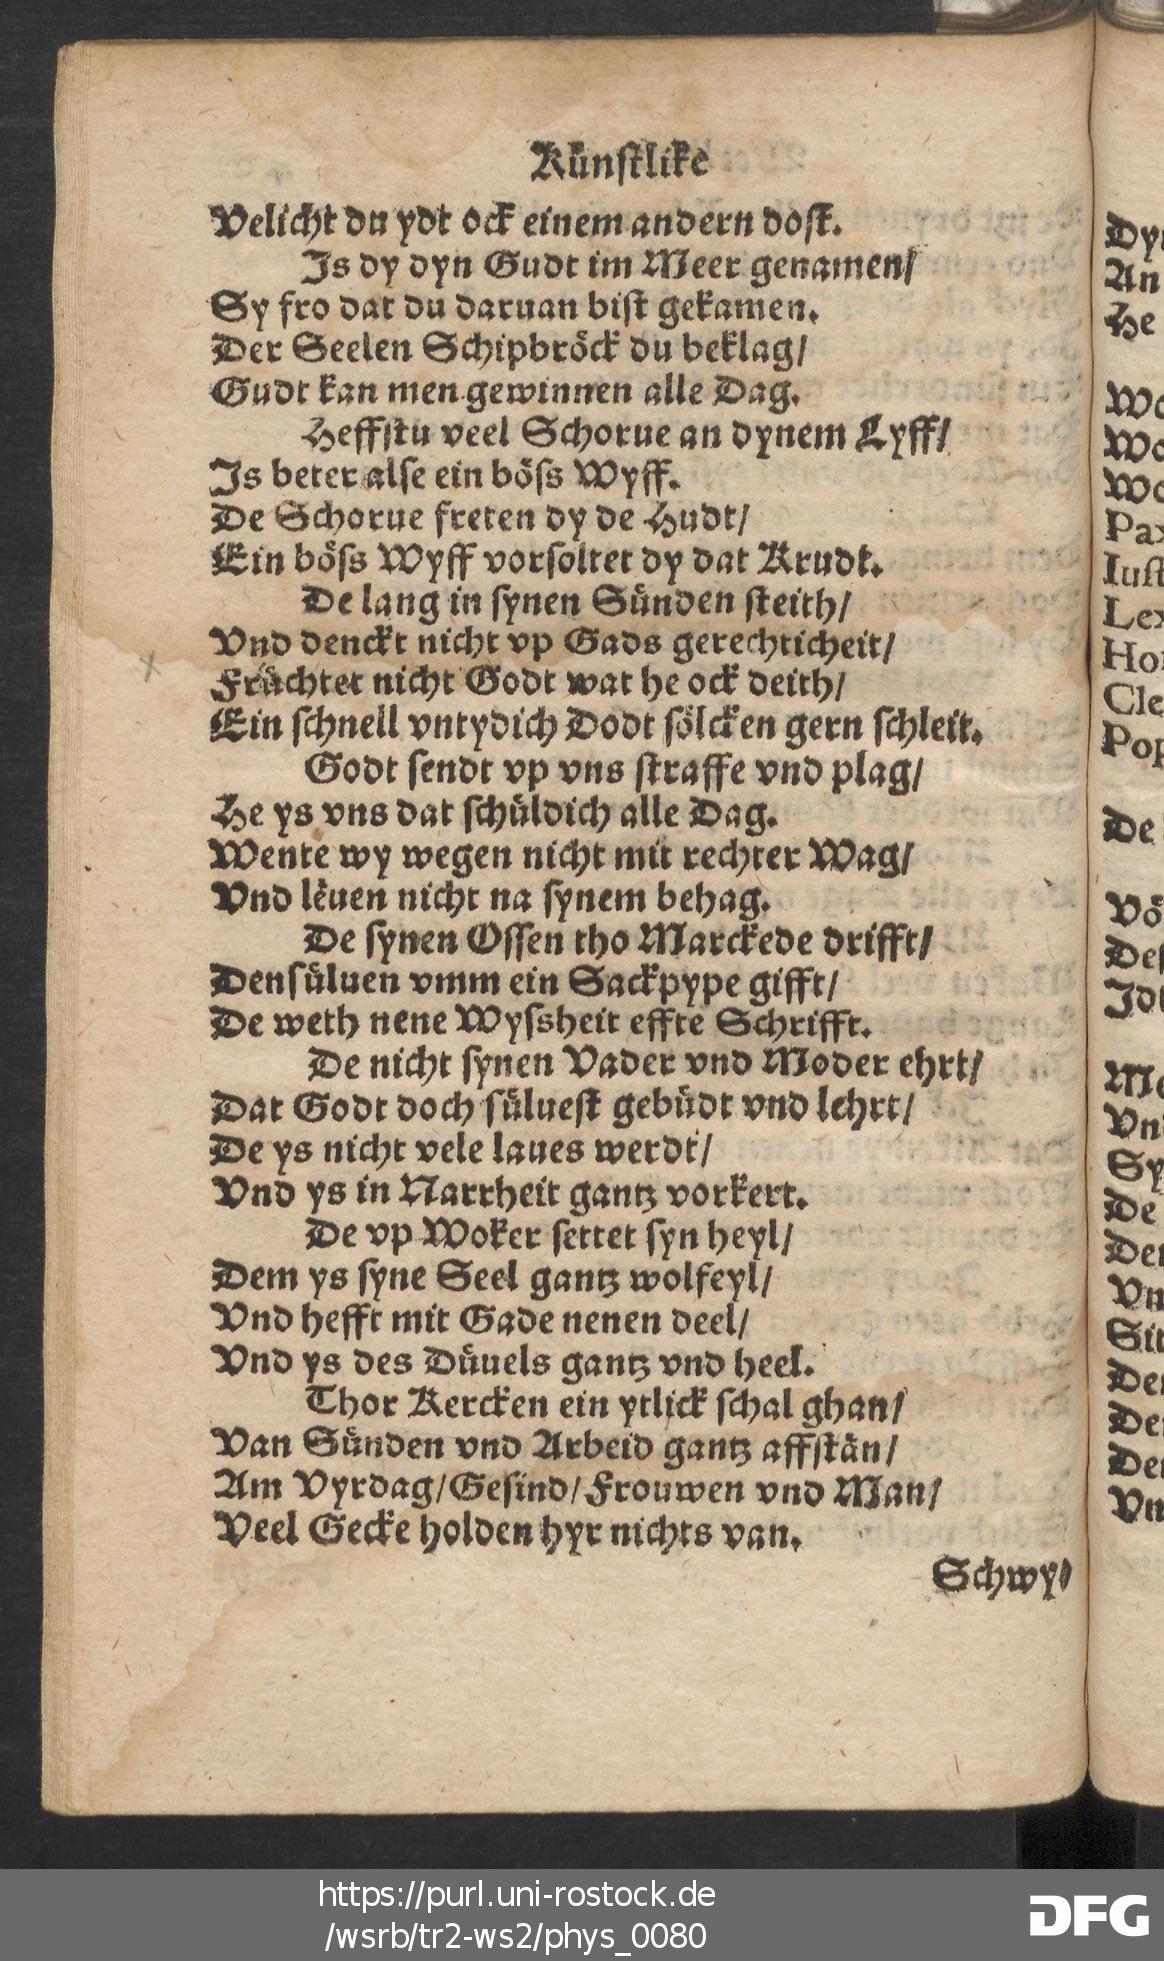 Künstlike
Velicht du ydt ock einem andern dost.
Is dy dyn Gudt im Meer genamen/
Sy fro dat du daruan bist gekamen.
Der Seelen Schipbröck du beklag/
Gudt kan men gewinnen alle Dag.
Heffstu veel Schorue an dynem Lyff/
Is beter alse ein böss Wyff.
De Schorue freten dy de Hudt/
Ein böss Wyff vorsoltet dy dat Krudt.
De lang in synen Sünden steith/
Vnd denckt nicht vp Gads gerechticheit/
Früchtet nicht Godt wat he ock deith/
Ein schnell vntydich Dodt sölcken gern schleit.
Godt sendt vp vns straffe vnd plag/
He ys vns dat schüldich alle Dag.
Wente wy wegen nicht mit rechter Wag/
Vnd lëuen nicht na synem behag.
De synen Ossen tho Marckede drifft/
Densüluen vmm ein Sackpype gifft/
De weth nene Wyssheit effte Schrifft.
De nicht synen Vader vnd Moder ehrt/
Dat Godt doch süluest gebüdt vnd lehrt/
De ys nicht vele laues werdt/
Vnd ys in Narrheit gantz vorkert.
De vp Woker settet syn heyl/
Dem ys syne Seel gantz wolfeyl/
Vnd hefft mit Gade nenen deel/
Vnd ys des Düuels gantz vnd heel.
Thor Kercken ein ytlick schal ghan/
Van Sünden vnd Arbeid gantz affstän/
Am Vyrdag/Gesind/Frouwen vnd Man/
Veel Gecke holden hyr nichts van.
Schwy/
https://purl.uni-rostock.de
/wsrb/tr2-ws2/phys_0080
DFG